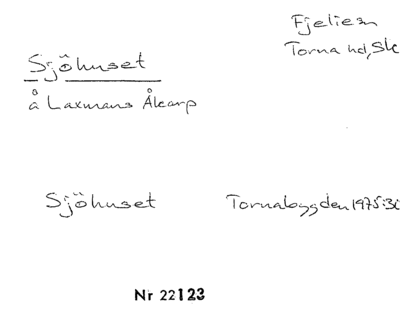 Fjelie sn
Torna hd, Sk
Sjöhuset
å Laxmans Åkarp
Sjöhuset Tornabygden 1975:3
Nr 22123